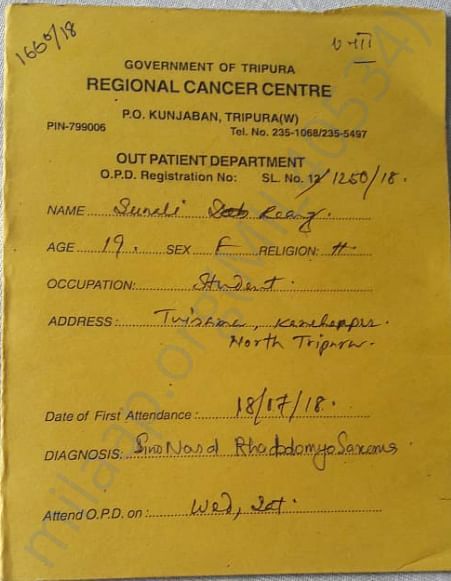 1660/18
U-III
GOVERNMENT OF TRIPURA
REGIONAL CANCER CENTRE
P.O. KUNJABAN, TRIPURA(W)
PIN-799006 Tel. No. 235-1068/235-5497
OUT PATIENT DEPARTMENT
O.P.D. Registration No: SL. No. 12/1250/18.
NAME Reang.
AGE 19. SEX F RELIGION: H
OCCUPATION: Student.
ADDRESS: Tuisama, Kanchanpur.
North Tripura.
Date of First Attendance: 18/07/18.
DIAGNOSIS: SinoNasal
Attend O.P.D. on: Wed, Sat.
milaap.org